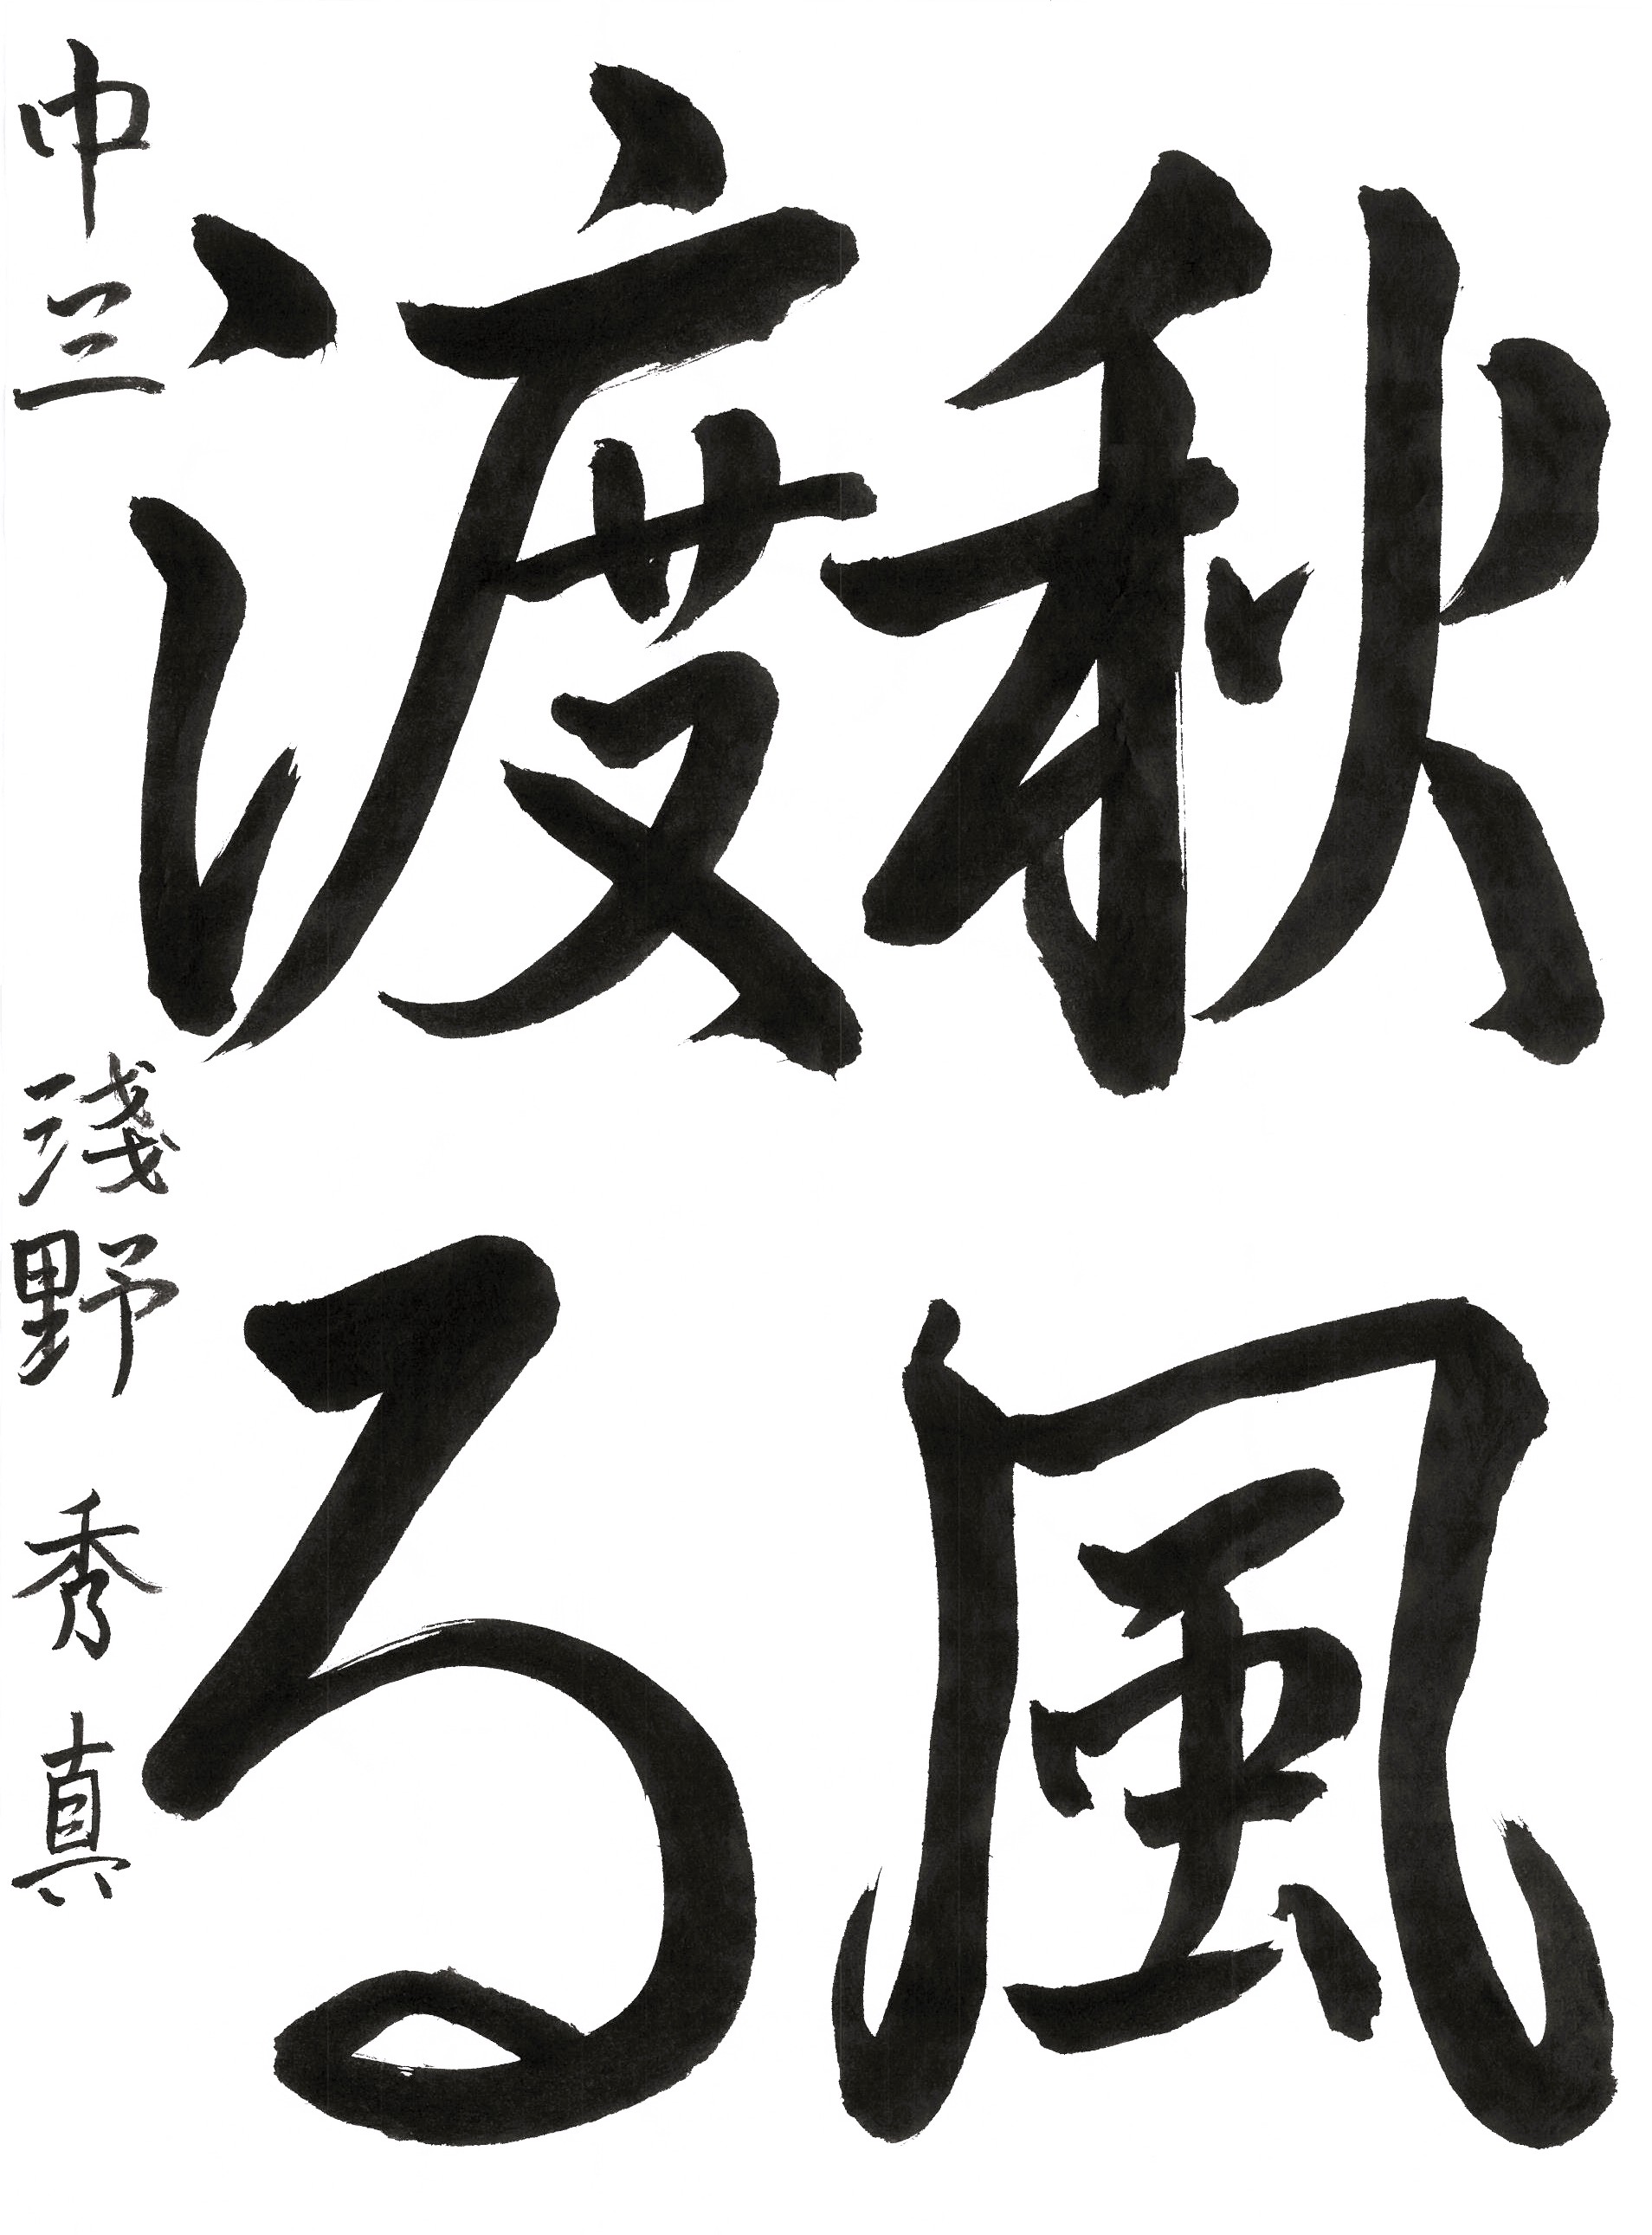 秋風
渡る
中三 淺野秀真